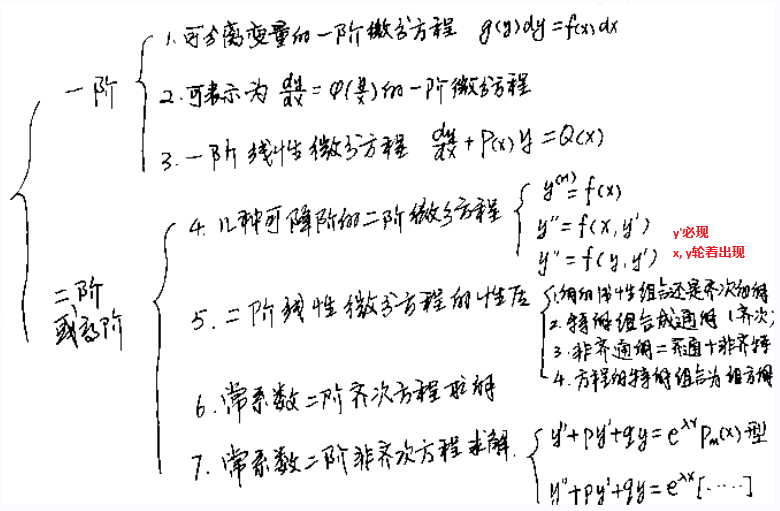 一阶
1. 可分离变量的一阶微分方程 g(y)dy=f(x)dx
2. 可表示为 dy/dx = φ(y/x) 的一阶微分方程
3. 一阶线性微分方程 dy/dx + P(x)y = Q(x)
二阶
或高阶
4. 几种可降阶的二阶微分方程
y⁽ⁿ⁾=f(x)
y''=f(x,y')
y''=f(y,y')
y'必现
x, y轮着出现
5. 二阶线性微分方程的性质
1. 解的线性组合还是齐次的解
2. 特解组合成通解(齐次)
3. 非齐通解=齐通+非齐特
4. 方程的特解组合为组方解
6. 常系数二阶齐次方程求解
7. 常系数二阶非齐次方程求解
y''+py'+qy=e^λx Pₘ(x)型
y''+py'+qy=e^λx[.....]